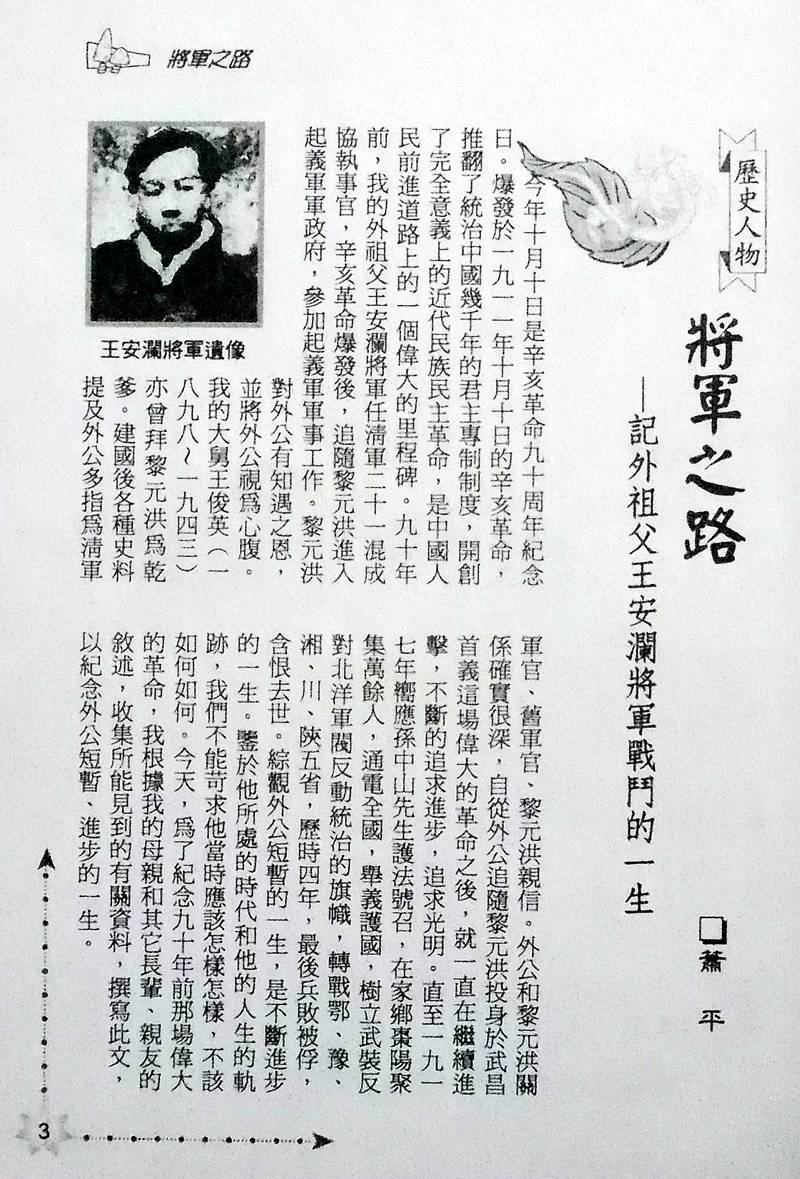 將軍之路
歷史人物
將軍之路
—記外祖父王安瀾將軍戰鬥的一生
□蕭 平
今年十月十日是辛亥革命九十周年紀念
日。爆發於一九一一年十月十日的辛亥革命，
推翻了統治中國幾千年的君主專制制度，開創
了完全意義上的近代民族民主革命，是中國人
民前進道路上的一個偉大的里程碑。九十年
前，我的外祖父王安瀾將軍任清軍二十一混成
協執事官，辛亥革命爆發後，追隨黎元洪進入
起義軍軍政府，參加起義軍軍事工作。黎元洪
對外公有知遇之恩，
並將外公視爲心腹。
我的大舅王俊英（一
八九八～一九四三）
亦曾拜黎元洪爲乾
爹。建國後各種史料
提及外公多指爲清軍
王安瀾將軍遺像
軍官、舊軍官、黎元洪親信。外公和黎元洪關
係確實很深，自從外公追隨黎元洪投身於武昌
首義這場偉大的革命之後，就一直在繼續進
擊，不斷的追求進步，追求光明。直至一九一
七年嚮應孫中山先生護法號召，在家鄉棗陽聚
集萬餘人，通電全國，舉義護國，樹立武裝反
對北洋軍閥反動統治的旗幟，轉戰鄂、豫、
湘、川、陝五省，歷時四年，最後兵敗被俘，
含恨去世。綜觀外公短暫的一生，是不斷進步
的一生。鑒於他所處的時代和他的人生的軌
跡，我們不能苛求他當時應該怎樣怎樣，不該
如何如何。今天，爲了紀念九十年前那場偉大
的革命，我根據我的母親和其它長輩、親友的
敘述，收集所能見到的有關資料，撰寫此文，
以紀念外公短暫、進步的一生。
3